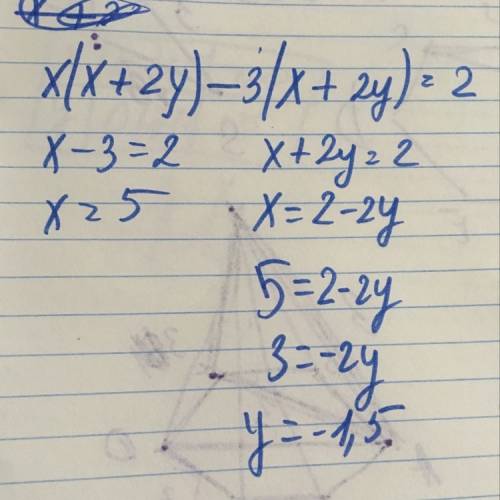 x(x+2y)-3(x+2y)=2
x-3=2 x+2y=2
x=5 x=2-2y
5=2-2y
3=-2y
y=-1,5